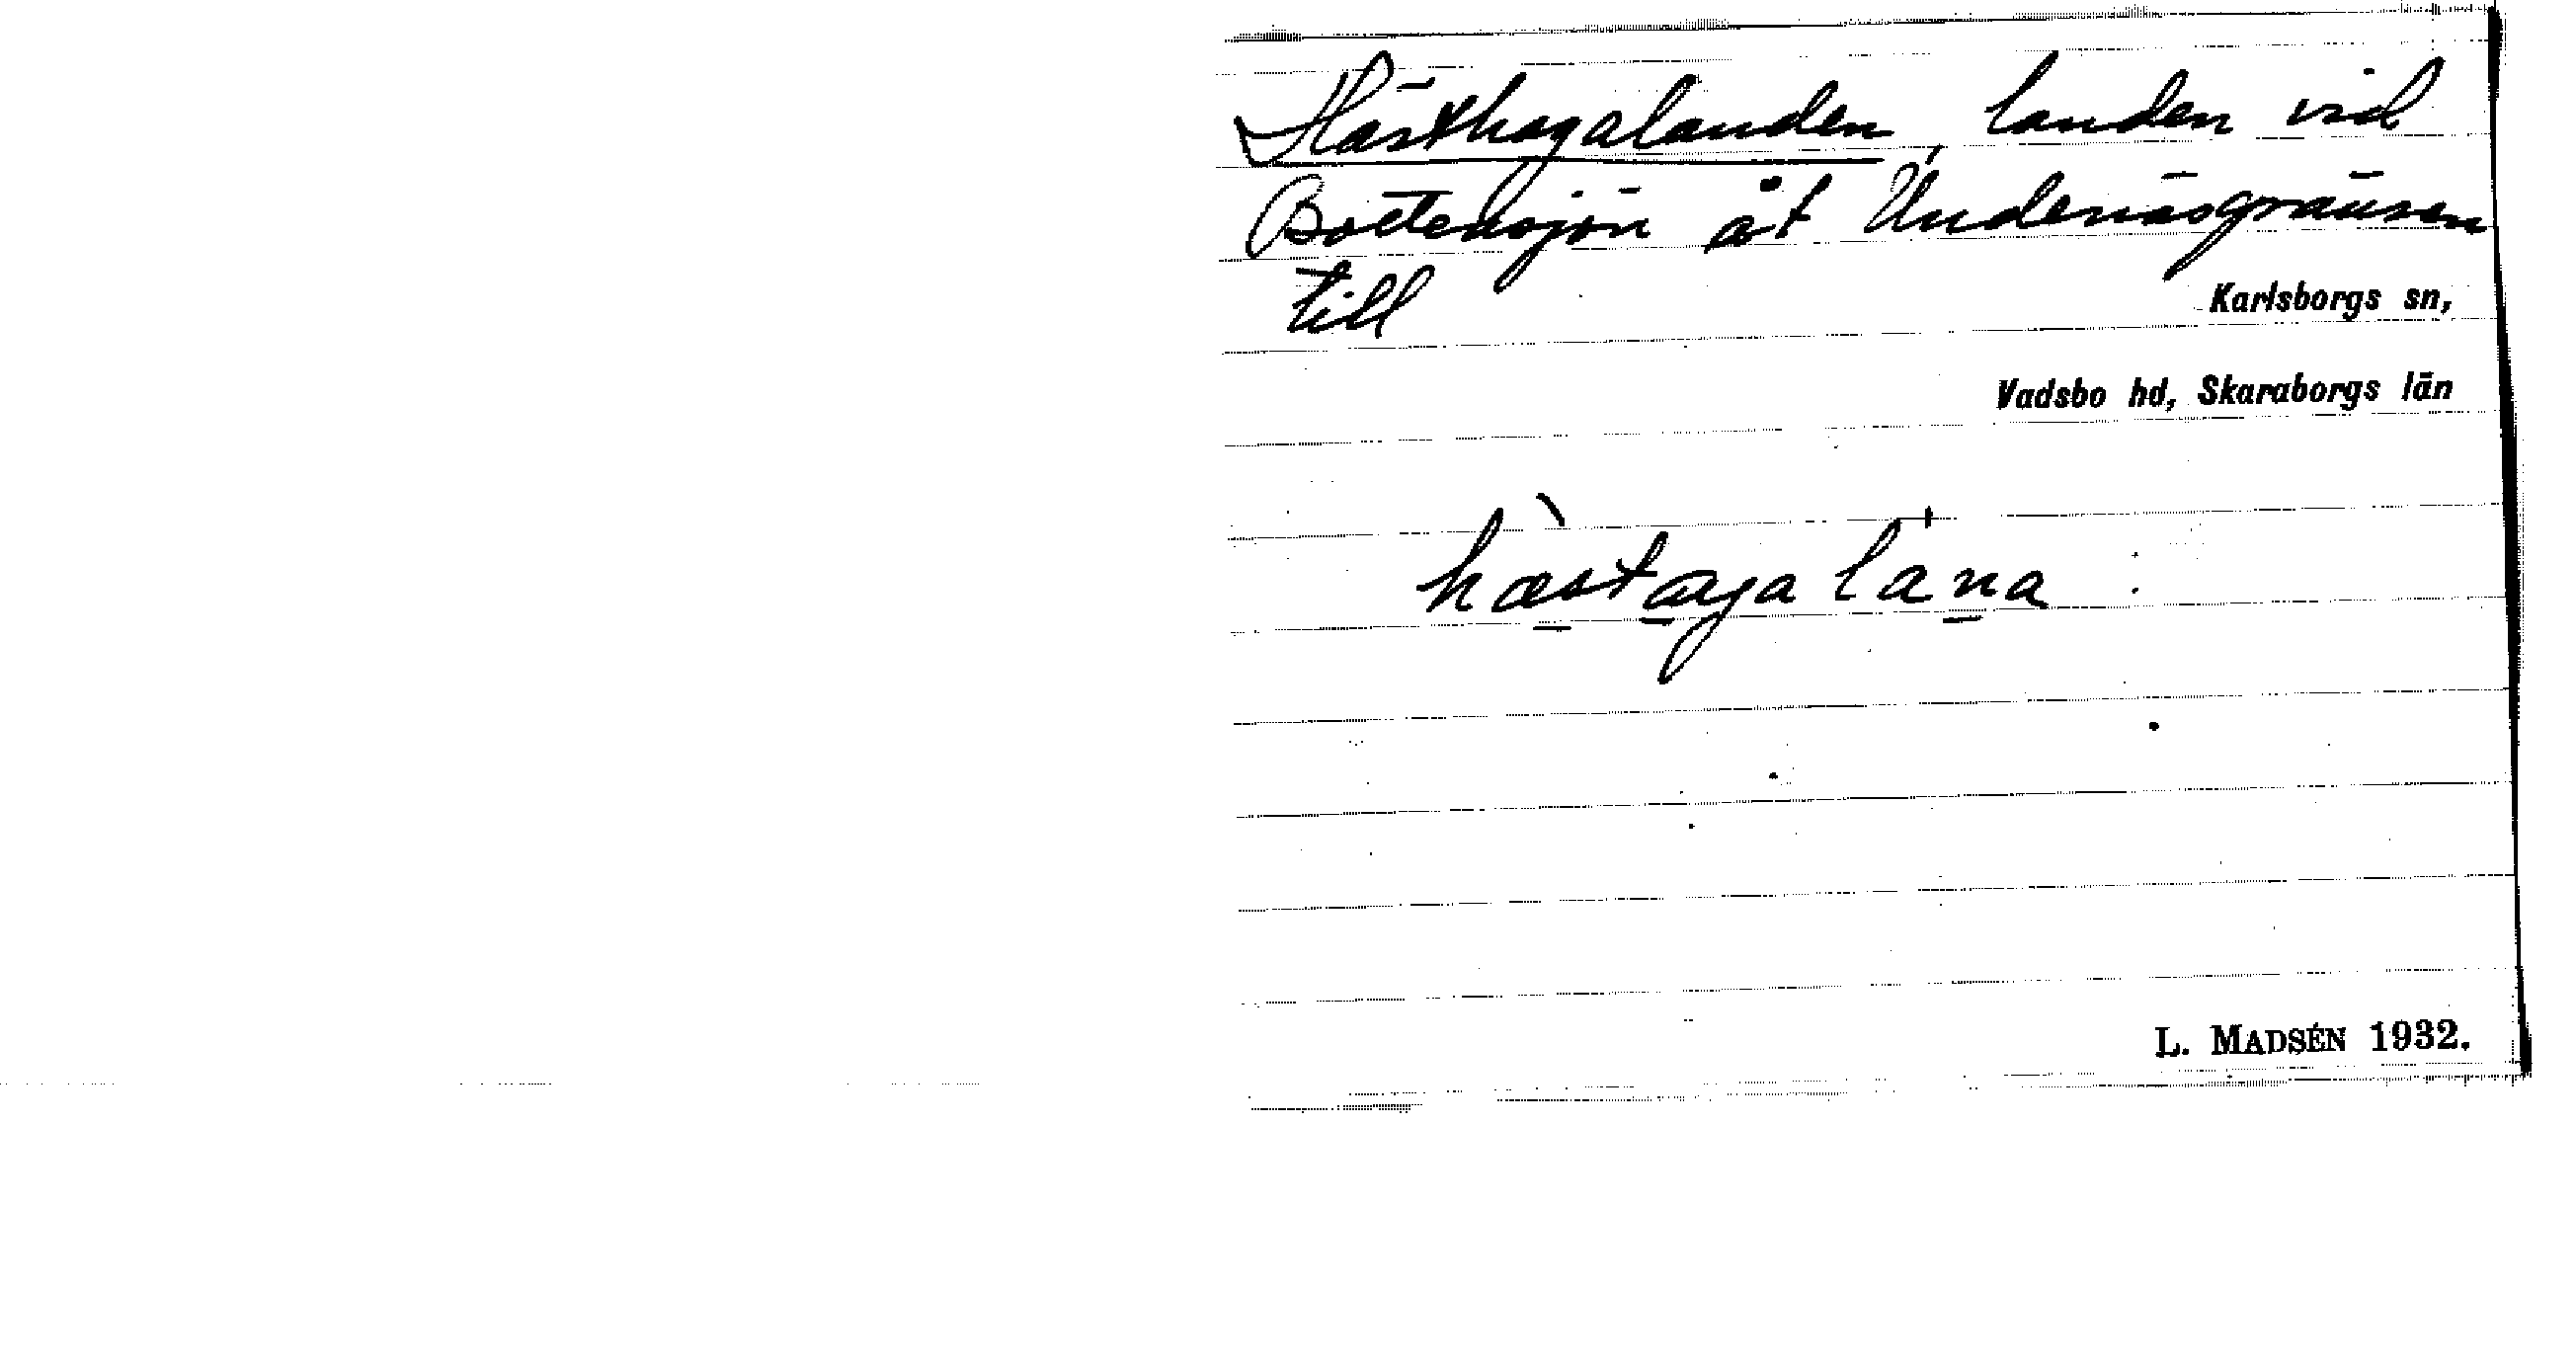 Hästhagalanden, landen vid
Bottensjön åt Undenäsgränsen
till
Karlsborgs sn,
Vadsbo hd, Skaraborgs län
L. MADSÉN 1932.